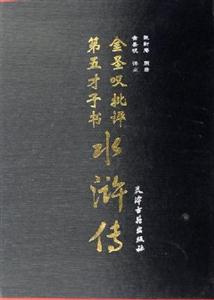 施耐庵 原著
金圣叹 评点
金圣叹批评
第五才子书
水浒传
天津古籍出版社